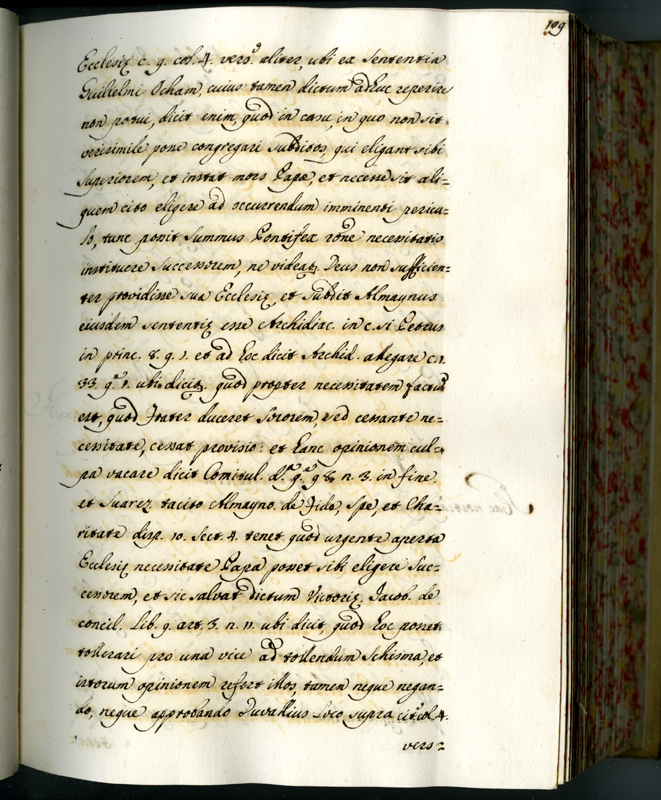 109
Ecclesię c. 9. col. 4. vers.º aliter, ubi ex sententia
Guilielmi Ocham, cuius tamen dictum adhuc reperire
non potui, dicit enim, quod in casu, in quo non sit
verisimile pone congregari subditos, qui eligant sibi
superiorem, et instat mors Papæ, et necesse sit ali=
quem cito eligere ad occurrendum imminenti pericu=
lo, tunc possit summus Pontifex rõne necessitatis
instituere successorem, ne videat. Deus non sufficien=
ter providisse sua Ecclesię, et subdit Almaynus
eiusdem sententię esse Archidiac. in c. si Petrus
in princ. 8. q. 1. et ad hoc dicit Archid. allegare c. 1.
33 q. 1. ubi dicit. quod propter necessitatem factũ
est, quod frater duceret sororem, sed cessante ne=
cessitate, cessat provisio: et hanc opinionem cul=
pa vacare dicit Comitul. n. 3. in fine
et Suarez tacito Almayno. de Fide, Spe, et Cha=
ritate disp. 10. sect. 4. tenet quod urgente aperta
Ecclesię necessitate Papa posset sibi eligere suc=
cessorem, et sic salvat dictum Victorię. Jacob. de
concil. lib. 9. art. 3. n. 11. ubi dicit, quod hoc posset
tollerari pro una vice ad tollendum schisma, et
istorum opinionem refert illos, tamen neque negan=
do, neque approbando Duvallius loco supra cit. col. 4.
vers